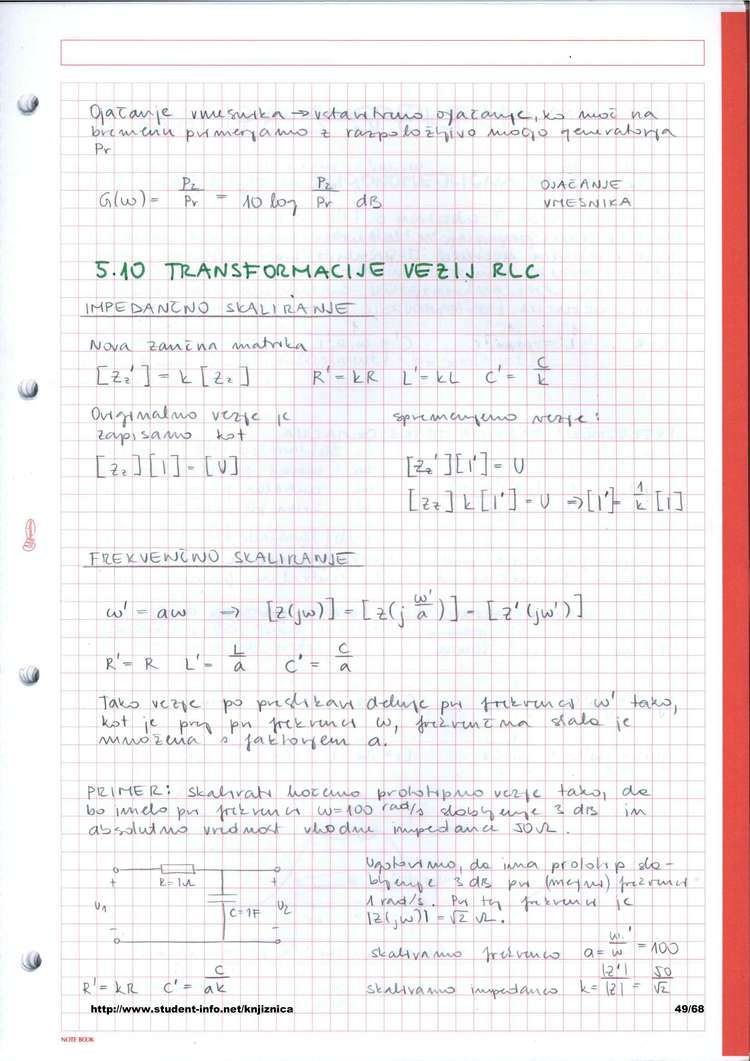 Ojačanje vmesnika → vstavitveno ojačanje, ko moč na
bremenu primerjamo z razpoložljivo močjo generatorja
Pr
G(ω) = P₂/Pr = 10 log P₂/Pr dB OJAČANJE VMESNIKA
5.10 TRANSFORMACIJE VEZIJ RLC
IMPEDANČNO SKALIRANJE
Nova zančna matrika
[Zz'] = k [Zz] R' = kR L' = kL C' = C/k
Originalno vezje je spremenjeno vezje:
zapisano kot
[Zz][I] = [U] [Zz'][I'] = U
[Zz] k [I'] = U ⇒ [I'] = 1/k [I]
FREKVENČNO SKALIRANJE
ω' = aω → [Z(jω)] = [Z(j ω'/a)] = [Z'(jω')]
R' = R L' = L/a C' = C/a
Tako vezje po preslikavi deluje pri frekvenci ω' tako,
kot je prej pri frekvenci ω, frekvenčna skala je
množena s faktorjem a.
PRIMER: Skalirati hočemo prototipno vezje tako, da
bo imelo pri frekvenci ω=100 rad/s slabljenje 3 dB in
absolutno vrednost vhodne impedance 50Ω.
Ugotovimo, da ima prototip sla-
bljenje 3 dB pri (mejni) frekvenci
1 rad/s. Pri tej frekvenci je
|Z(jω)| = √2 Ω.
+ R=1Ω +
U₁ C=1F U₂
- -
skaliramo frekvenco a = ω'/ω = 100
R' = kR C' = C/ak skaliramo impedanco k = |Z'|/|Z| = 50/√2
http://www.student-info.net/knjiznica 49/68
NOTE BOOK